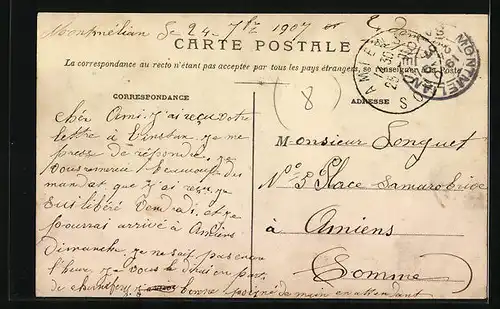 Montmélian le 24 - 7bre 1907
CARTE POSTALE
La correspondance au recto n'étant pas acceptée par tous les pays étrangers, se renseigner à la Poste
MONTMELIAN
CORRESPONDANCE
ADRESSE
8
chér Ami. j'ai reçu votre
lettre à l'instan. je me
presse de répondre. je
vous remerci beaucoup des
mandat que j'ai reçu. je
suis libéré Vendredi. et je
pourrai arrivé à Amiens
dimanche. je ne sait pas encore
l'heur. je vous le
de bonne poigné de main en attendant
Monsieur Longuet
No 3 Place Samarobrive
à Amiens
Somme